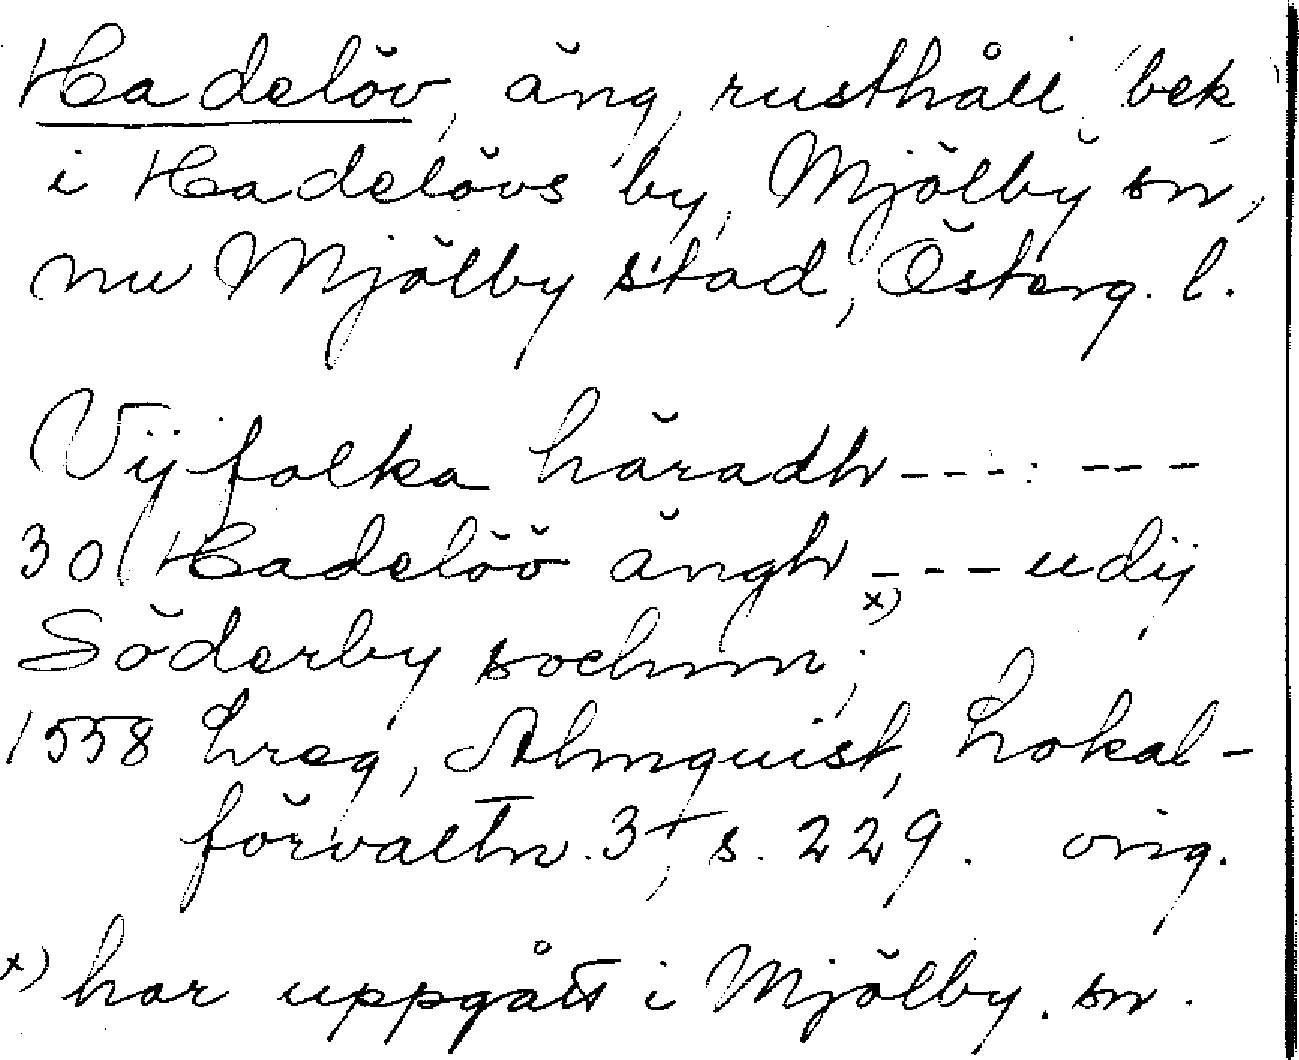 Hadelöv, äng, rusthåll bek
i Hadelövs by, Mjölby sn,
nu Mjölby stad, Österg. l.
Vijfolka häradh --- : ---
30/ Hadelöö ängh --- udij
Söderby sochnn x);
1558 Lreg, Almquist, Lokal-
förvaltn. 3, s. 229. orig.
x) har uppgått i Mjölby sn.